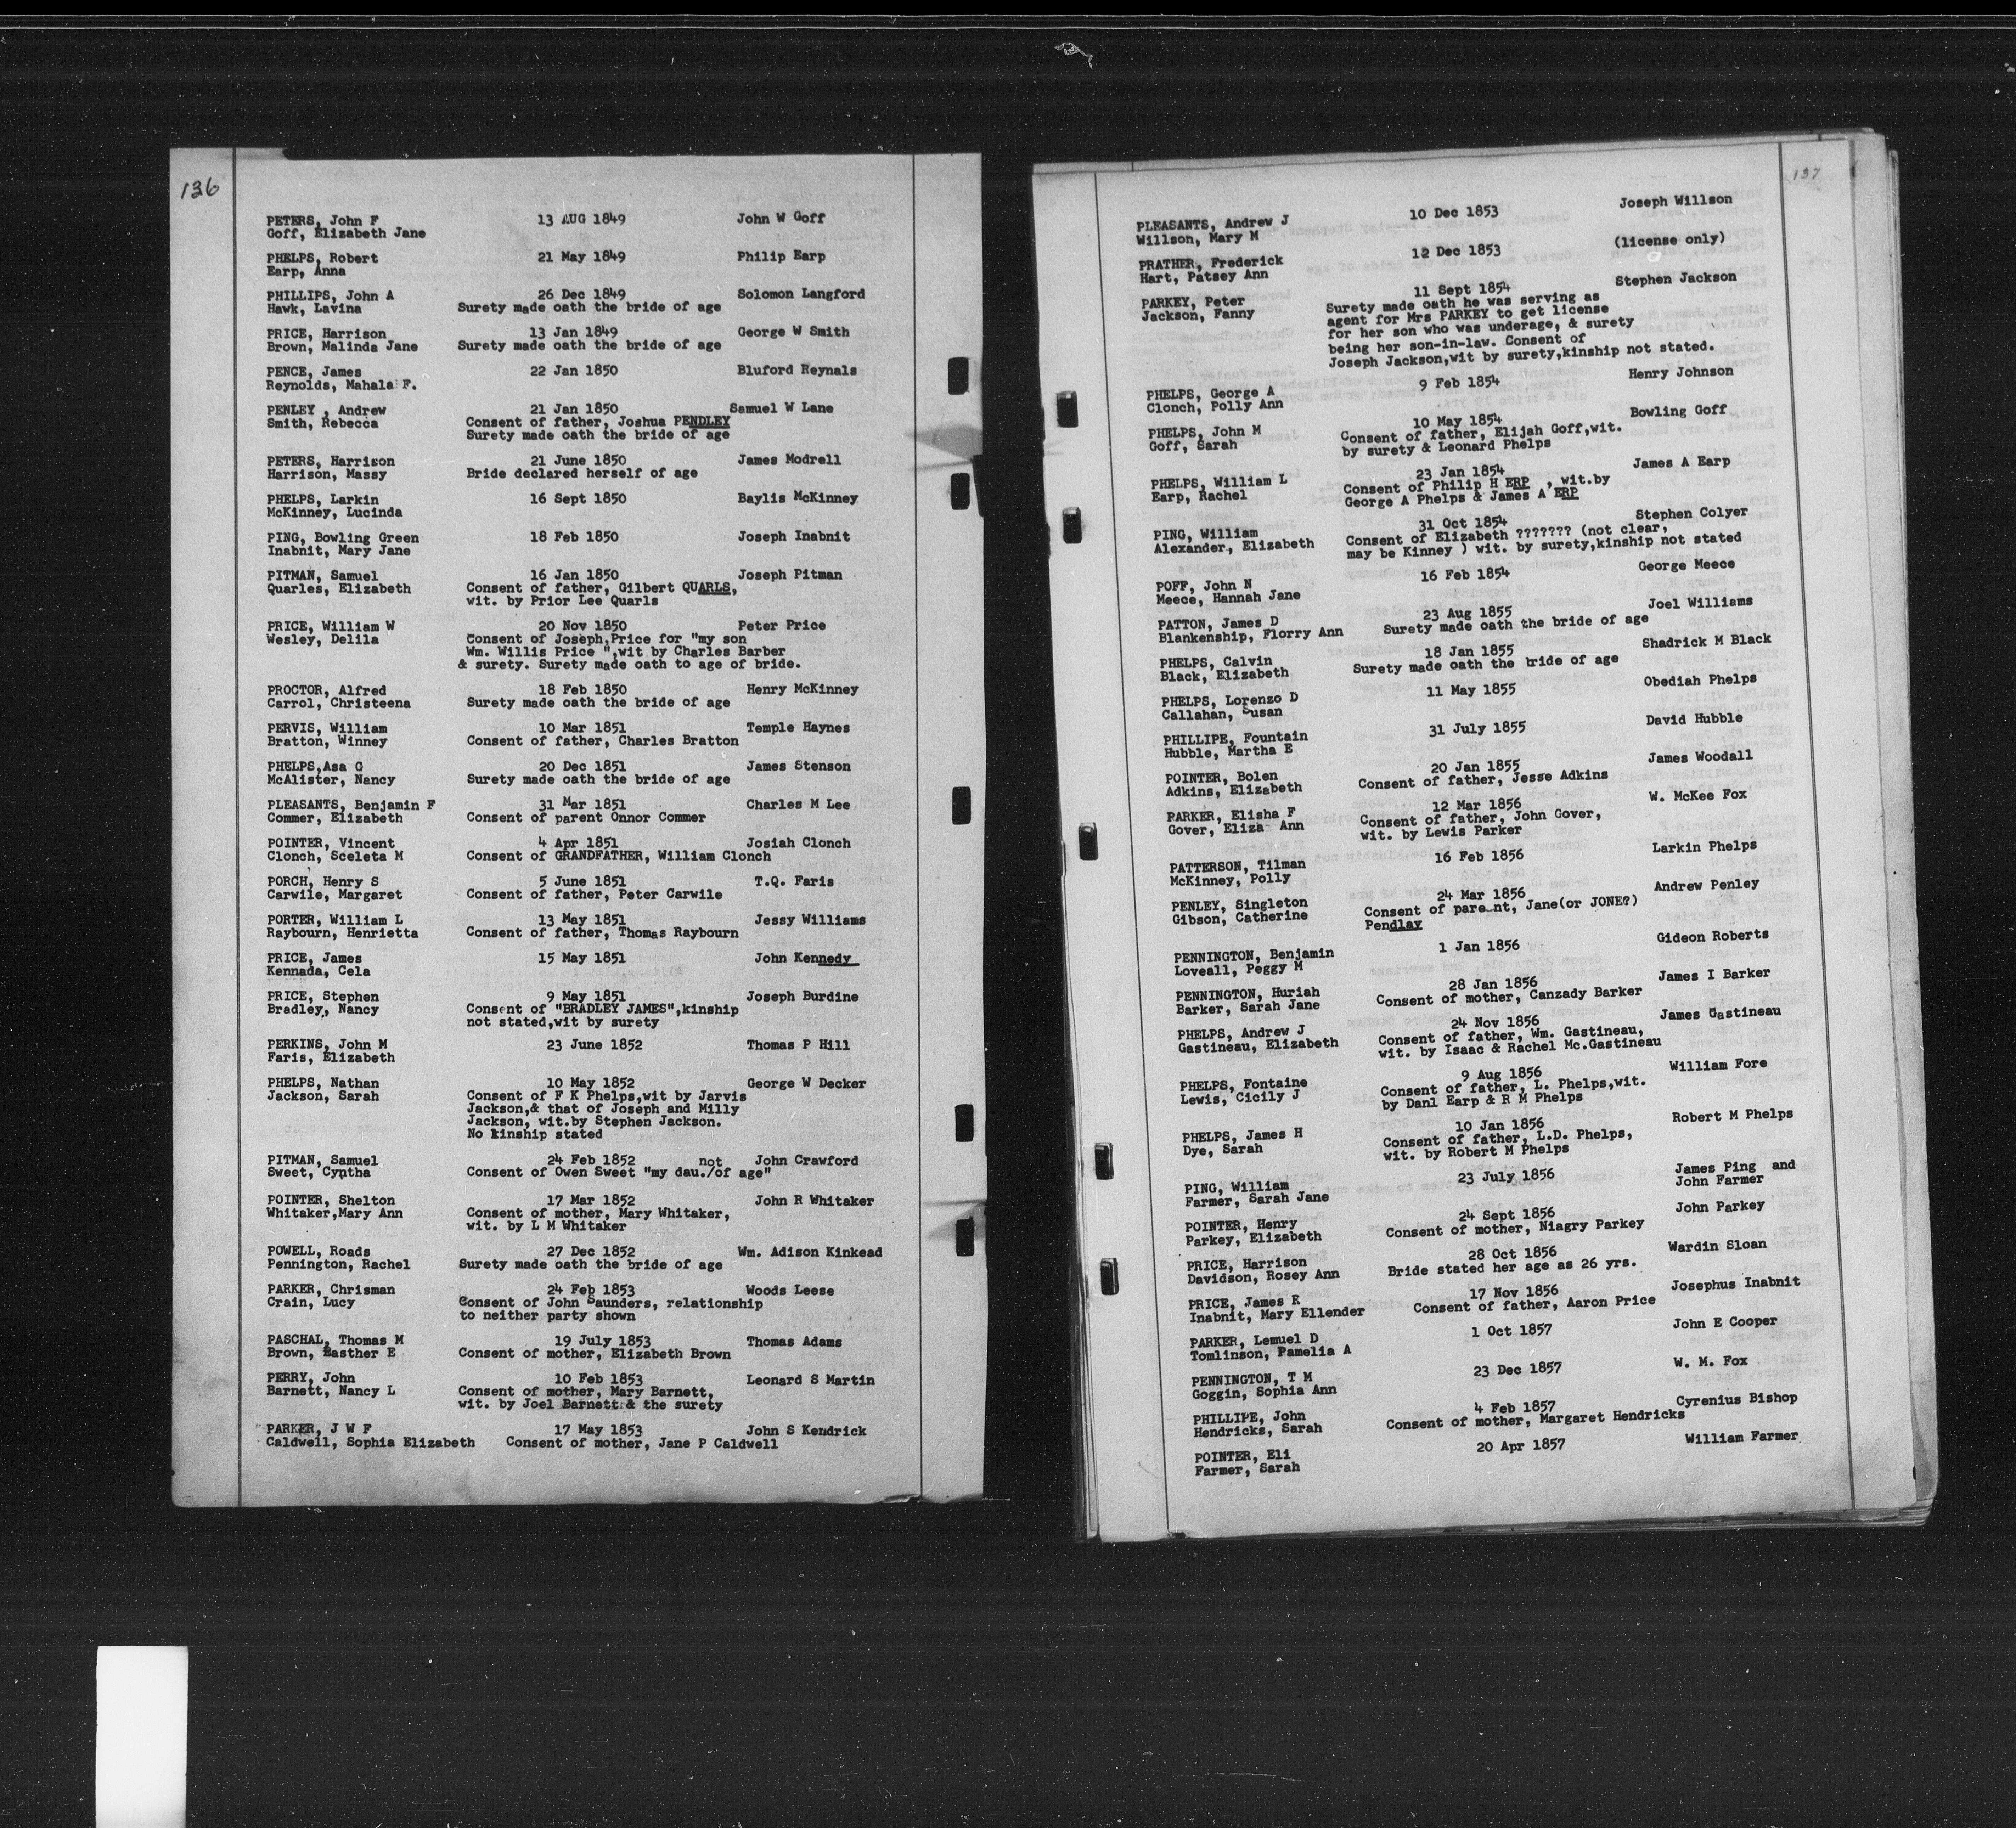 136
PETERS, John F 13 AUG 1849 John W Goff
Goff, Elizabeth Jane
PHELPS, Robert 21 May 1849 Philip Earp
Earp, Anna
PHILLIPS, John A 26 Dec 1849 Solomon Langford
Hawk, Lavina Surety made oath the bride of age
PRICE, Harrison 13 Jan 1849 George W Smith
Brown, Malinda Jane Surety made oath the bride of age
PENCE, James 22 Jan 1850 Bluford Reynals
Reynolds, Mahala F.
PENLEY , Andrew 21 Jan 1850 Samuel W Lane
Smith, Rebecca Consent of father, Joshua PENDLEY
Surety made oath the bride of age
PETERS, Harrison 21 June 1850 James Modrell
Harrison, Massy Bride declared herself of age
PHELPS, Larkin 16 Sept 1850 Baylis McKinney
McKinney, Lucinda
PING, Bowling Green 18 Feb 1850 Joseph Inabnit
Inabnit, Mary Jane
PITMAN, Samuel 16 Jan 1850 Joseph Pitman
Quarles, Elizabeth Consent of father, Gilbert QUARLS,
wit. by Prior Lee Quarls
PRICE, William W 20 Nov 1850 Peter Price
Wesley, Delila Consent of Joseph,Price for "my son
Wm. Willis Price ",wit by Charles Barber
& surety. Surety made oath to age of bride.
PROCTOR, Alfred 18 Feb 1850 Henry McKinney
Carrol, Christeena Surety made oath the bride of age
PERVIS, William 10 Mar 1851 Temple Haynes
Bratton, Winney Consent of father, Charles Bratton
PHELPS,Asa G 20 Dec 1851 James Stenson
McAlister, Nancy Surety made oath the bride of age
PLEASANTS, Benjamin F 31 Mar 1851 Charles M Lee
Commer, Elizabeth Consent of parent Onnor Commer
POINTER, Vincent 4 Apr 1851 Josiah Clonch
Clonch, Sceleta M Consent of GRANDFATHER, William Clonch
PORCH, Henry S 5 June 1851 T.Q. Faris
Carwile, Margaret Consent of father, Peter Carwile
PORTER, William L 13 May 1851 Jessy Williams
Raybourn, Henrietta Consent of father, Thomas Raybourn
PRICE, James 15 May 1851 John Kennedy
Kennada, Cela
PRICE, Stephen 9 May 1851 Joseph Burdine
Bradley, Nancy Consent of "BRADLEY JAMES",kinship
not stated,wit by surety
PERKINS, John M 23 June 1852 Thomas P Hill
Faris, Elizabeth
PHELPS, Nathan 10 May 1852 George W Decker
Jackson, Sarah Consent of F K Phelps,wit by Jarvis
Jackson,& that of Joseph and Milly
Jackson, wit.by Stephen Jackson.
No kinship stated
PITMAN, Samuel 24 Feb 1852 not John Crawford
Sweet, Cyntha Consent of Owen Sweet "my dau./of age"
POINTER, Shelton 17 Mar 1852 John R Whitaker
Whitaker,Mary Ann Consent of mother, Mary Whitaker,
wit. by L M Whitaker
POWELL, Roads 27 Dec 1852 Wm. Adison Kinkead
Pennington, Rachel Surety made oath the bride of age
PARKER, Chrisman 24 Feb 1853 Woods Leese
Crain, Lucy Consent of John Saunders, relationship
to neither party shown
PASCHAL, Thomas M 19 July 1853 Thomas Adams
Brown, Easther E Consent of mother, Elizabeth Brown
PERRY, John 10 Feb 1853 Leonard S Martin
Barnett, Nancy L Consent of mother, Mary Barnett,
wit. by Joel Barnett & the surety
PARKER, J W F 17 May 1853 John S Kendrick
Caldwell, Sophia Elizabeth Consent of mother, Jane P Caldwell
137
PLEASANTS, Andrew J 10 Dec 1853 Joseph Willson
Willson, Mary M
PRATHER, Frederick 12 Dec 1853 (license only)
Hart, Patsey Ann
PARKEY, Peter 11 Sept 1854 Stephen Jackson
Jackson, Fanny Surety made oath he was serving as
agent for Mrs PARKEY to get license
for her son who was underage, & surety
being her son-in-law. Consent of
Joseph Jackson,wit by surety,kinship not stated.
PHELPS, George A 9 Feb 1854 Henry Johnson
Clonch, Polly Ann
PHELPS, John M 10 May 1854 Bowling Goff
Goff, Sarah Consent of father, Elijah Goff,wit.
by surety & Leonard Phelps
PHELPS, William L 23 Jan 1854 James A Earp
Earp, Rachel Consent of Philip H ERP , wit.by
George A Phelps & James A ERP
PING, William 31 Oct 1854 Stephen Colyer
Alexander, Elizabeth Consent of Elizabeth ??????? (not clear,
may be Kinney ) wit. by surety,kinship not stated
POFF, John N 16 Feb 1854 George Meece
Meece, Hannah Jane
PATTON, James D 23 Aug 1855 Joel Williams
Blankenship, Florry Ann Surety made oath the bride of age
PHELPS, Calvin 18 Jan 1855 Shadrick M Black
Black, Elizabeth Surety made oath the bride of age
PHELPS, Lorenzo D 11 May 1855 Obediah Phelps
Callahan, Susan
PHILLIPE, Fountain 31 July 1855 David Hubble
Hubble, Martha E
POINTER, Bolen 20 Jan 1855 James Woodall
Adkins, Elizabeth Consent of father, Jesse Adkins
PARKER, Elisha F 12 Mar 1856 W. McKee Fox
Gover, Eliza Ann Consent of father, John Gover,
wit. by Lewis Parker
PATTERSON, Tilman 16 Feb 1856 Larkin Phelps
McKinney, Polly
PENLEY, Singleton 24 Mar 1856 Andrew Penley
Gibson, Catherine Consent of parent, Jane(or JONE?)
Pendlay
PENNINGTON, Benjamin 1 Jan 1856 Gideon Roberts
Loveall, Peggy M
PENNINGTON, Huriah 28 Jan 1856 James I Barker
Barker, Sarah Jane Consent of mother, Canzady Barker
PHELPS, Andrew J 24 Nov 1856 James Gastineau
Gastineau, Elizabeth Consent of father, Wm. Gastineau,
wit. by Isaac & Rachel Mc.Gastineau
PHELPS, Fontaine 9 Aug 1856 William Fore
Lewis, Cicily J Consent of father, L. Phelps,wit.
by Danl Earp & R M Phelps
PHELPS, James H 10 Jan 1856 Robert M Phelps
Dye, Sarah Consent of father, L.D. Phelps,
wit. by Robert M Phelps
PING, William 23 July 1856 James Ping and
Farmer, Sarah Jane John Farmer
POINTER, Henry 24 Sept 1856 John Parkey
Parkey, Elizabeth Consent of mother, Niagry Parkey
PRICE, Harrison 28 Oct 1856 Wardin Sloan
Davidson, Rosey Ann Bride stated her age as 26 yrs.
PRICE, James R 17 Nov 1856 Josephus Inabnit
Inabnit, Mary Ellender Consent of father, Aaron Price
PARKER, Lemuel D 1 Oct 1857 John E Cooper
Tomlinson, Pamelia A
PENNINGTON, T M 23 Dec 1857 W. M. Fox
Goggin, Sophia Ann
PHILLIPE, John 4 Feb 1857 Cyrenius Bishop
Hendricks, Sarah Consent of mother, Margaret Hendricks
POINTER, Eli 20 Apr 1857 William Farmer
Farmer, Sarah